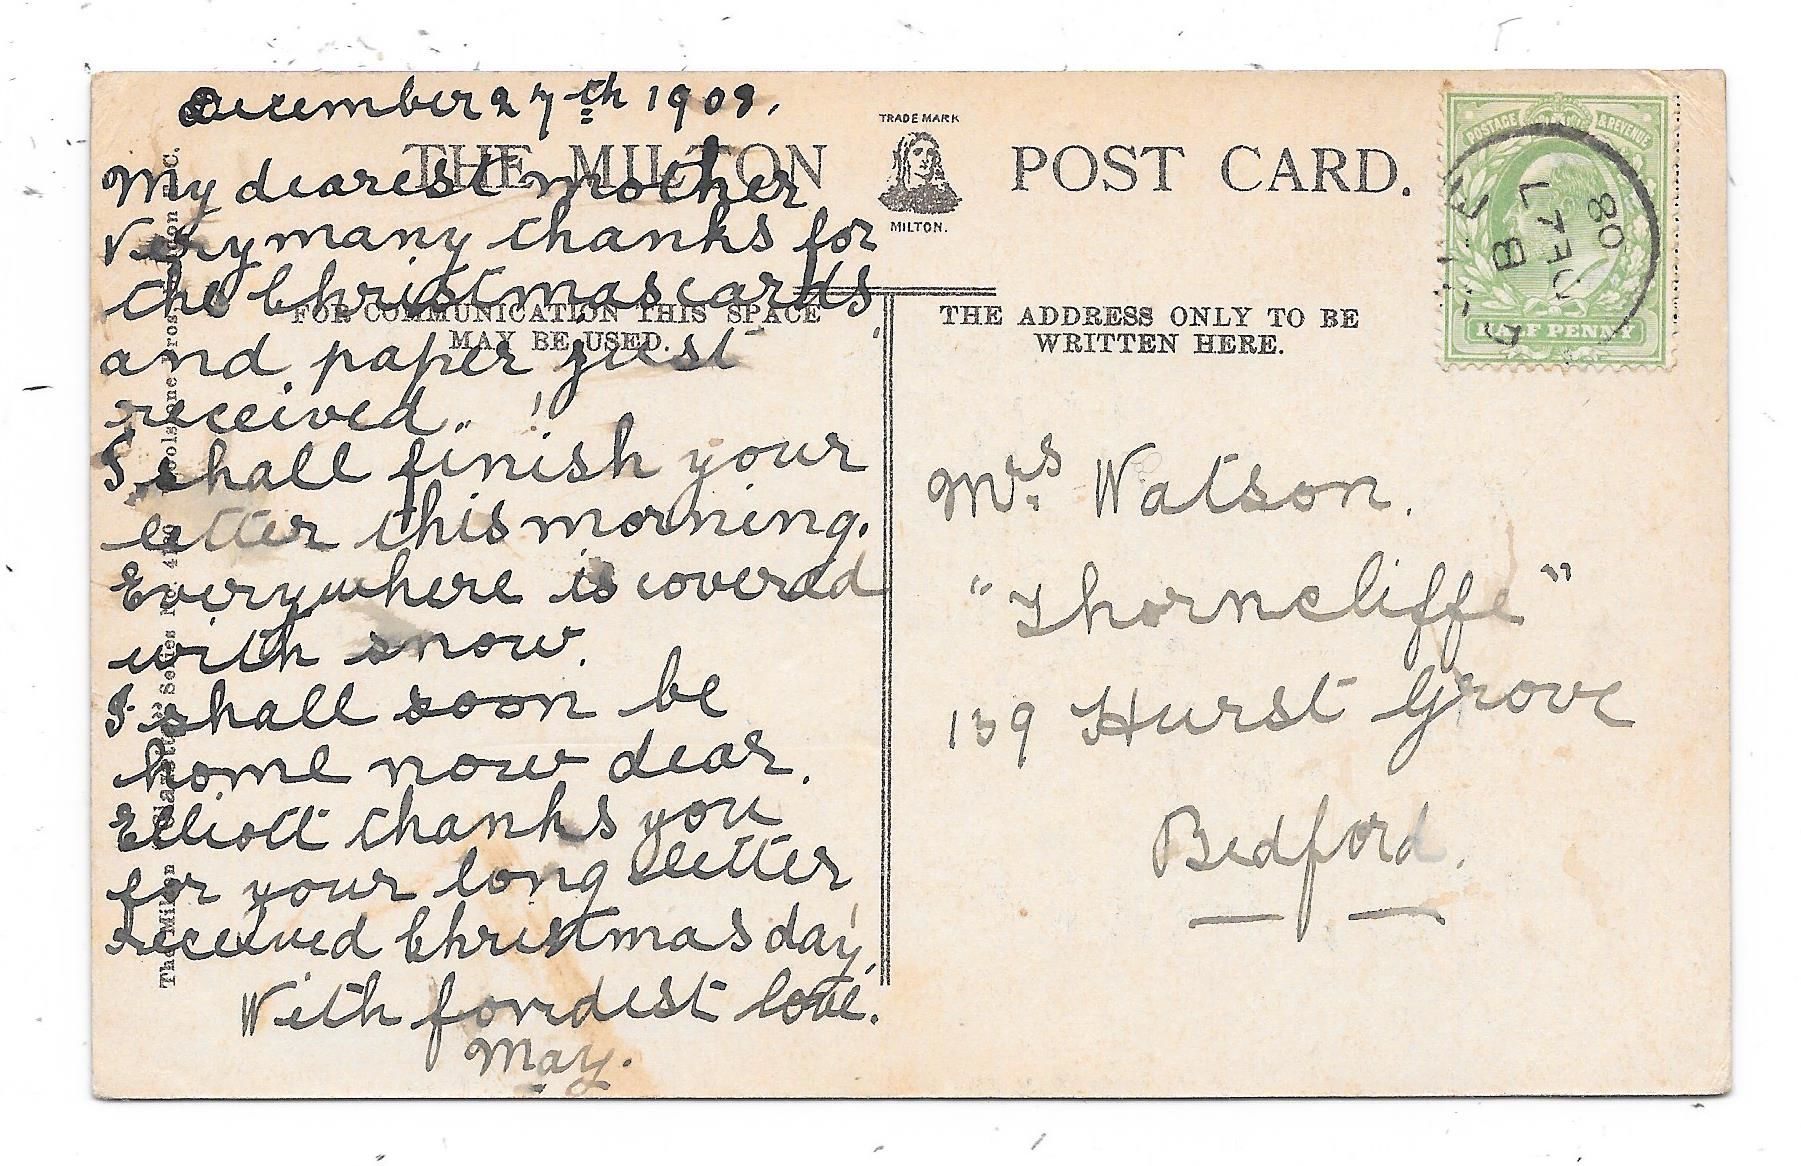 December 27th 1908.
My dearest mother
Very many thanks for
the Christmas cards,
and paper just
received.
I shall finish your
letter this morning.
Everywhere is covered
with snow.
I shall soon be
home now dear.
Elliott thanks you
for your long letter
received Christmas day.
With fondest love.
May.
THE MILTON
TRADE MARK
MILTON.
POST CARD.
FOR COMMUNICATION THIS SPACE
MAY BE USED.
THE ADDRESS ONLY TO BE
WRITTEN HERE.
Mrs. Watson.
"Thorncliffe"
139 Hurst Grove
Bedford.
POSTAGE & REVENUE
HALF PENNY
B
DE 27
08
The Milton Series No.